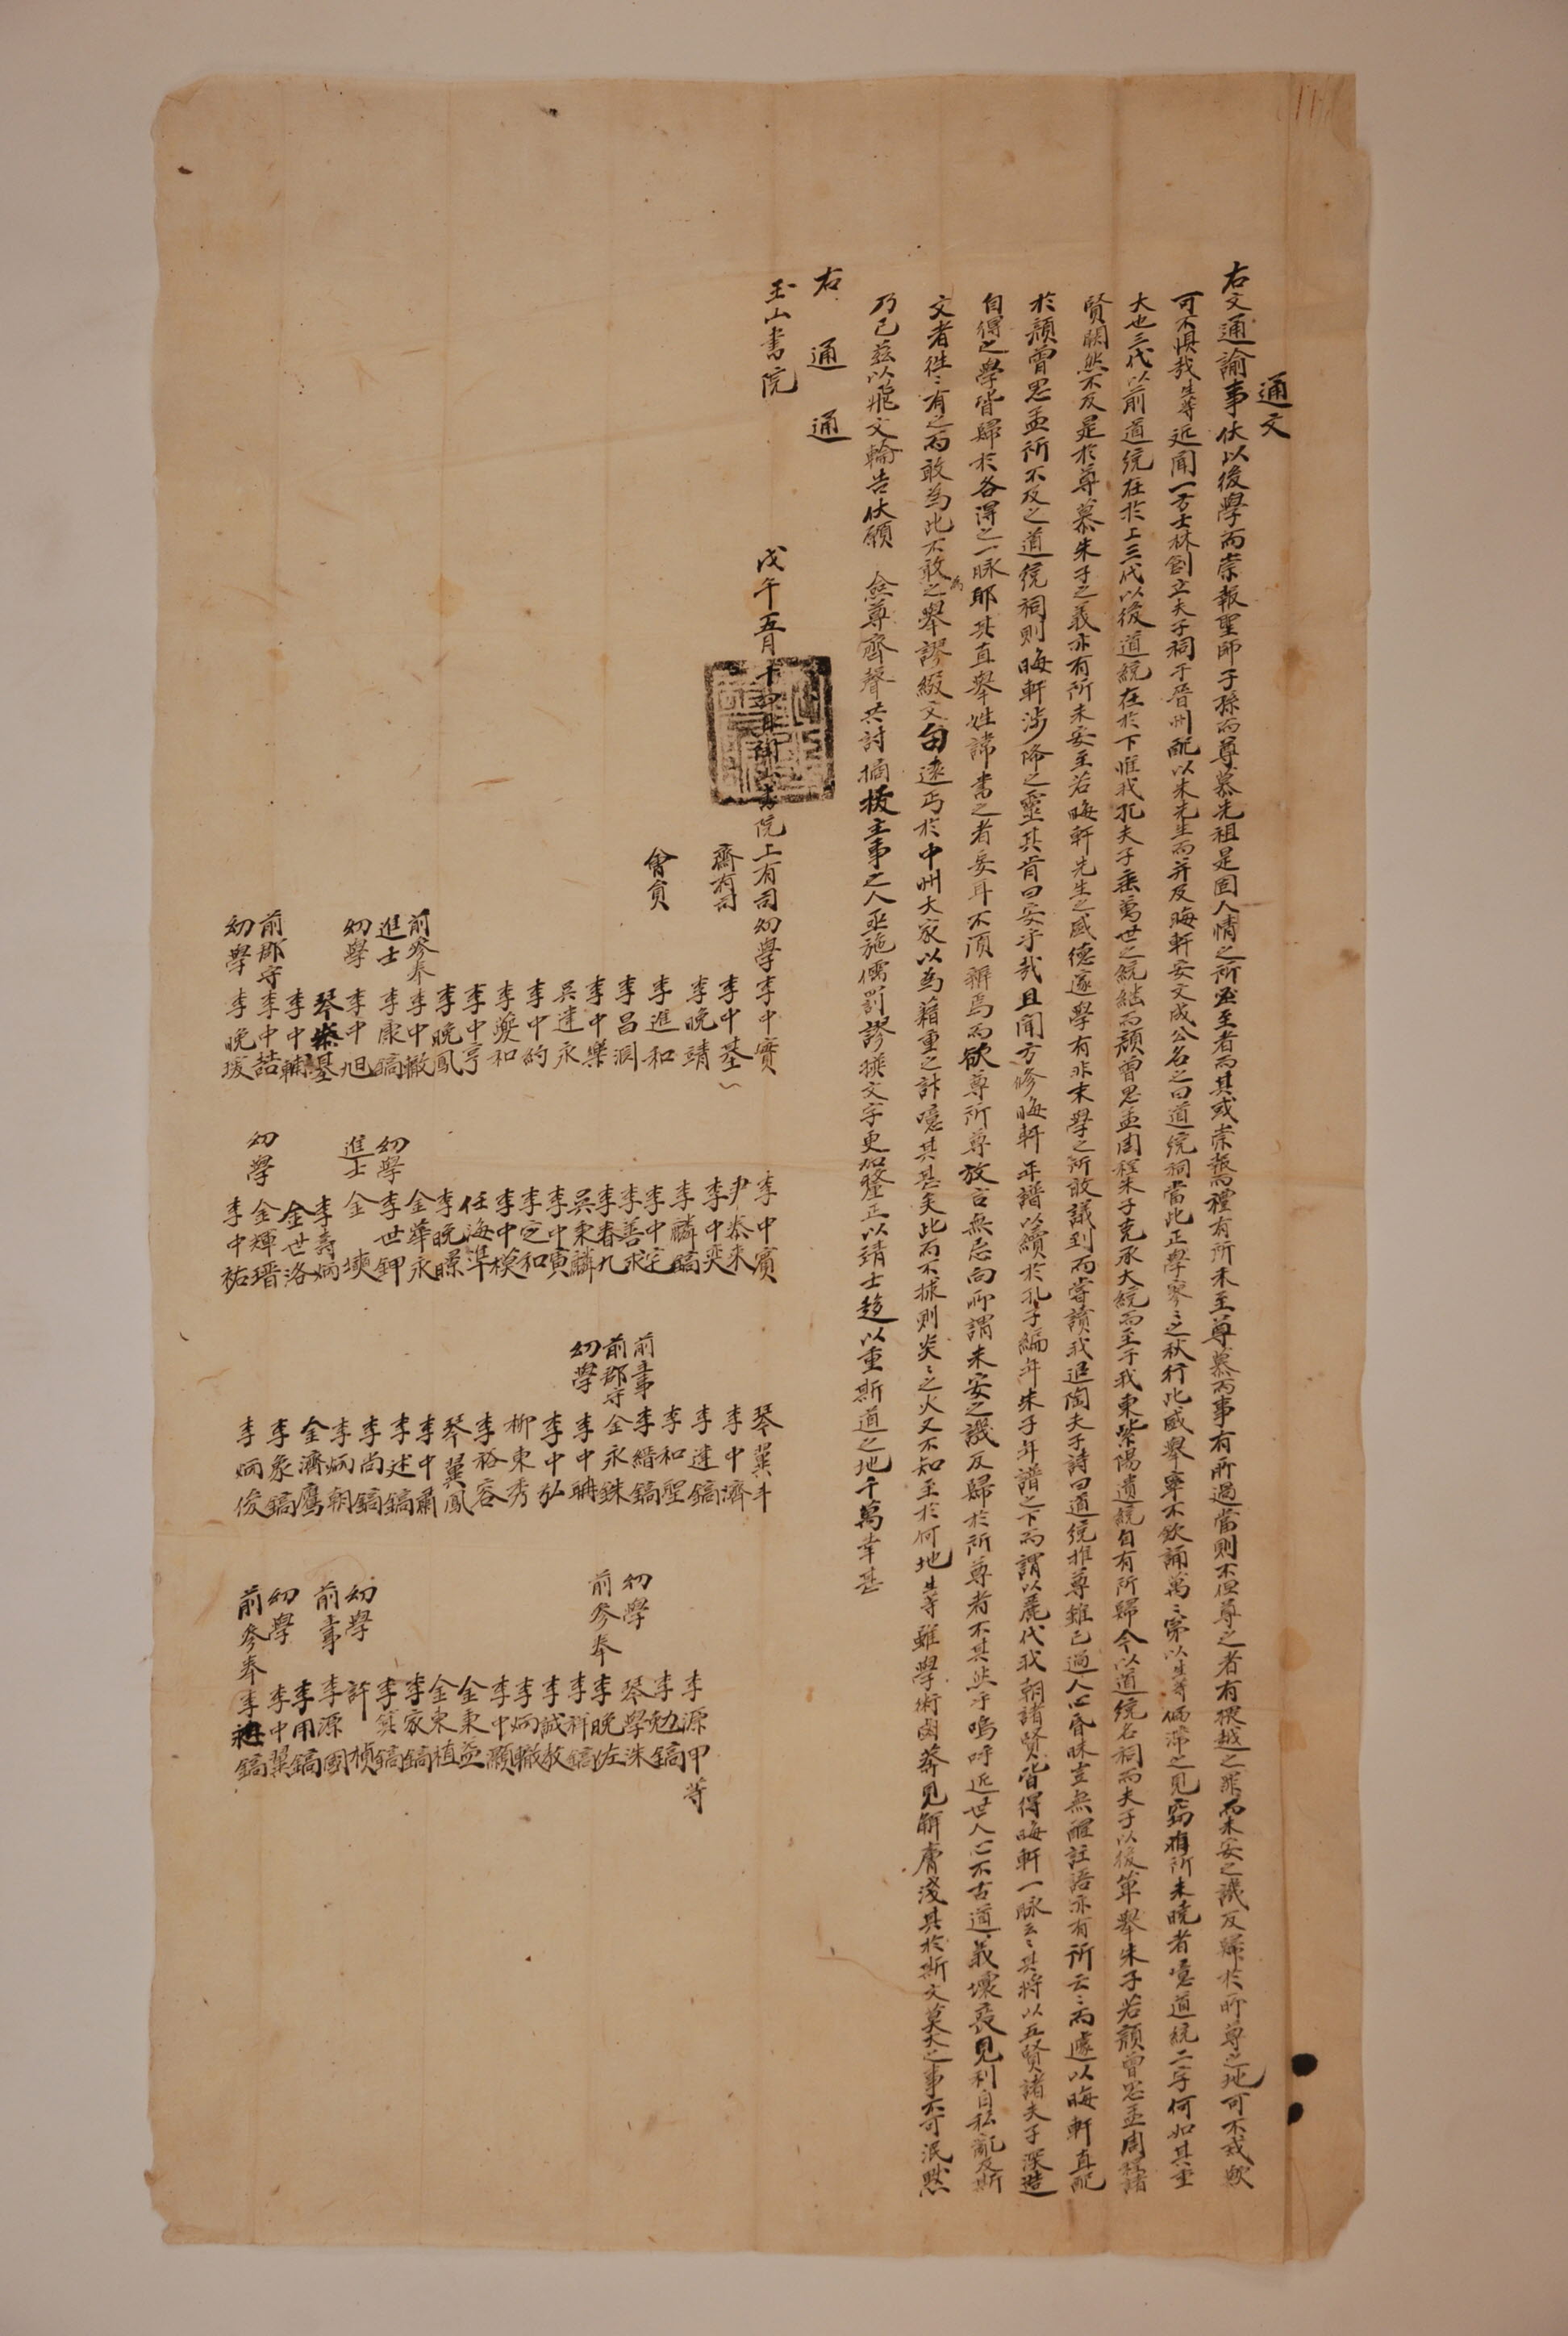 通文
右文通諭事伏以後學而崇報聖師子孫而尊慕先祖是固人情之所至者而其或崇報焉禮有所未至尊慕而事有所過當則不但尊之者有猥越之罪而未安之譏反歸於所尊之地可不戒歟
可不惧哉生等近聞一方士林創立夫子祠于晉州配以朱先生而并及晦軒安文成公名之曰道統祠當此正學寥〻之秋行此盛舉寧不欽誦萬〻第以生等傴滯之見竊有所未曉者噫道統二字何如其重
大也三代以前道統在於上三代以後道統在於下惟我孔夫子垂萬世之統緖而顏曾思孟周程朱子克承大統而至于我東紫陽遺統自有所歸今以道統名祠而夫子以後單舉朱子若顏曾思孟周程諸
賢闕然不及是於尊慕朱子之義亦有所未安至若晦軒先生之盛德邃學有非末學之所敢議到而嘗讀我退陶夫子詩曰道統推尊雖已過人心昏昧豈無醒註語亦有所云〻而遽以晦軒直配
於顏曾思孟所不及之道統祠則晦軒涉降之靈其肯曰安乎哉且聞方修晦軒年譜以續於孔子編年朱子年譜之下而謂以麗代我朝諸賢皆得晦軒一脉云〻其將以五賢諸夫子深造
自得之學皆歸於各得之一脉耶其直舉姓諱書之者妄耳不須辨焉而欲尊所尊放言無忌向所謂未安之譏反歸於所尊者不其然乎嗚呼近世人心不古道義壞喪見利自私亂及斯
文者徃〻有之而敢爲此不敢爲之舉謬綴文句遠丐於中州大家以爲藉重之計噫其甚矣此而不捄則炎〻之火又不知至於何地生等雖學術鹵莽見解膚淺其於斯文莫大之事不可泯默
乃已玆以飛文輪告伏願 僉尊齊聲共討摘拔主事之人亟施儒罰謬撰文字更加釐正以靖士趨以重斯道之地千萬幸甚
右 通 通
玉山書院
戊午五月十四日陶山書院上有司幼學李中實
齋有司 李中基
李晩靖
會員 李進和
李昌洞
李中樂
吳達永
李中約
李燮和
李中亨
李晩鳳
前參奉 李中轍
進士 李康鎬
幼學 李中旭
琴基
李中輔
前郡守 李中喆
幼學 李晩坂
李中賓
尹泰來
李中奕
李麟鎬
李中定
李善求
李春九
吳秉麟
李中寅
李定和
李中模
任海準
李晩㬌
金華永
幼學 李世鉀
進士 金塽
李壽炳
金世洛
幼學 金輝瑨
李中祐
琴冀斗
李中濟
李達鎬
李和聖
前主事 李縉鎬
前郡守 金永銖
幼學 李中聃
李中弘
柳東秀
李裕容
琴翼鳳
李中肅
李述鎬
李尚鎬
李炳朝
金濟鷹
李象鎬
李炳俊
李源甲等
李勉鎬
幼學 琴學洙
前參奉 李晩佐
李祥鎬
李誠教
李炳轍
李中顯
金秉益
金東植
李家鎬
李鎬
幼學 許楨
前主事 李源國
李用鎬
幼學 李中翼
前參奉 李鎬